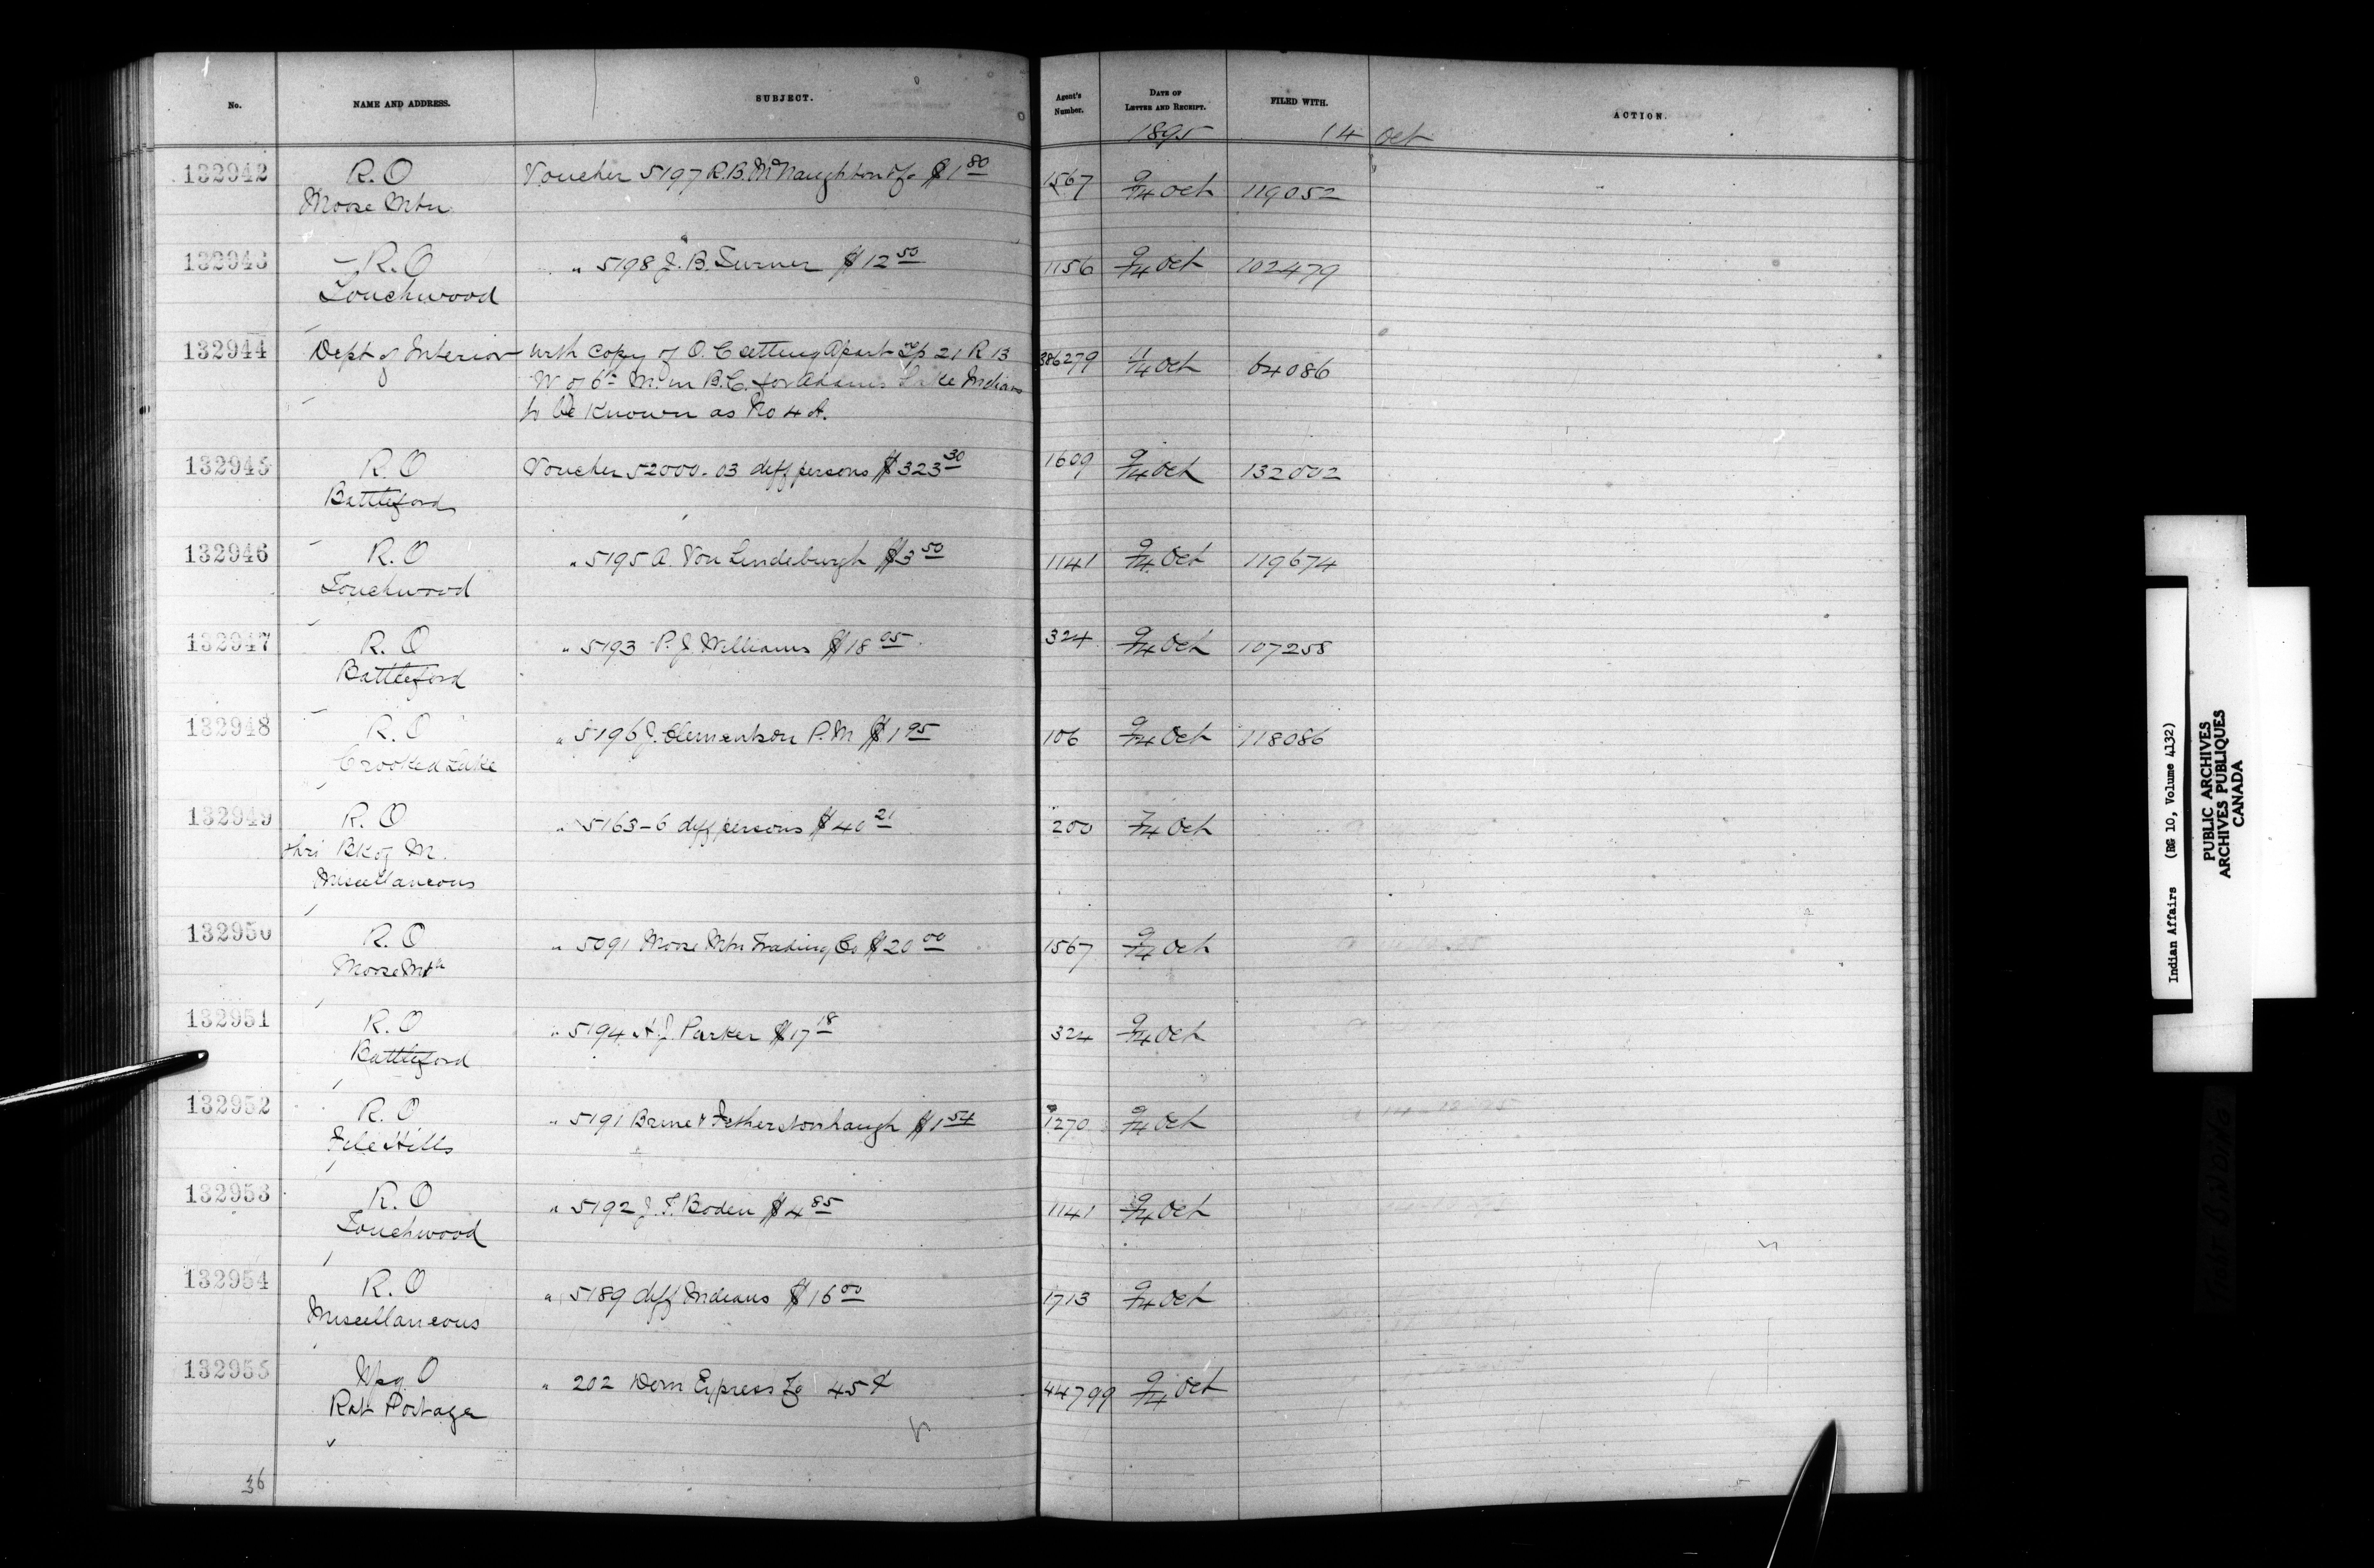 No. NAME AND ADDRESS. SUBJECT. Agent's Number. DATE OF LETTER AND RECEIPT. FILED WITH. ACTION.
1895 14 Oct
132942 R. O Voucher 5197 R.B. McNaughton $1 80 1567 9/14 Oct 119052
Moose Mtn
132943 R. O " 5198 J. B. Turner $12 50 1156 9/14 Oct 102479
Touchwood
132944 Dept of Interior with copy of O. C setting apart Tp 21 R 13 386279 11/14 Oct 64086
W of 6th M. in B.C. for Adams Lake Indians
to be known as No 4 A.
132945 R. O Voucher 52000-03 diff persons $323 30 1609 9/14 Oct 132002
Battleford
132946 R. O " 5195 A Von Lindeburgh $3 50 1141 9/14 Oct 119674
Touchwood
132947 R. O " 5193 P. J. Williams $18 05 324 9/14 Oct 107258
Battleford
132948 R. O " 5196 J. Clementson P.M $1 95 106 9/14 Oct 118086
Crooked Lake
132949 R. O " 5163-6 diff persons $40 21 200 7/14 Oct
thro Bk of M.
Miscellaneous
132950 R. O " 5091 Moose Mtn Trading Co $20 00 1567 9/14 Oct
Moose Mtn
132951 R. O " 5194 A. J. Parker $17 18 324 9/14 Oct
Battleford
132952 R. O " 5191 Brine & Fetherstonhaugh $1 54 1270 9/14 Oct
File Hills
132953 R. O " 5192 J. F. Boden $4 85 1141 9/14 Oct
Touchwood
132954 R. O " 5189 diff Indians $16 00 1713 9/14 Oct
Miscellaneous
132955 Wpg O " 202 Dom Express Co 45 ¢ 44799 9/14 Oct
Rat Portage
36
Indian Affairs (RG 10, Volume 4132)
PUBLIC ARCHIVES
ARCHIVES PUBLIQUES
CANADA